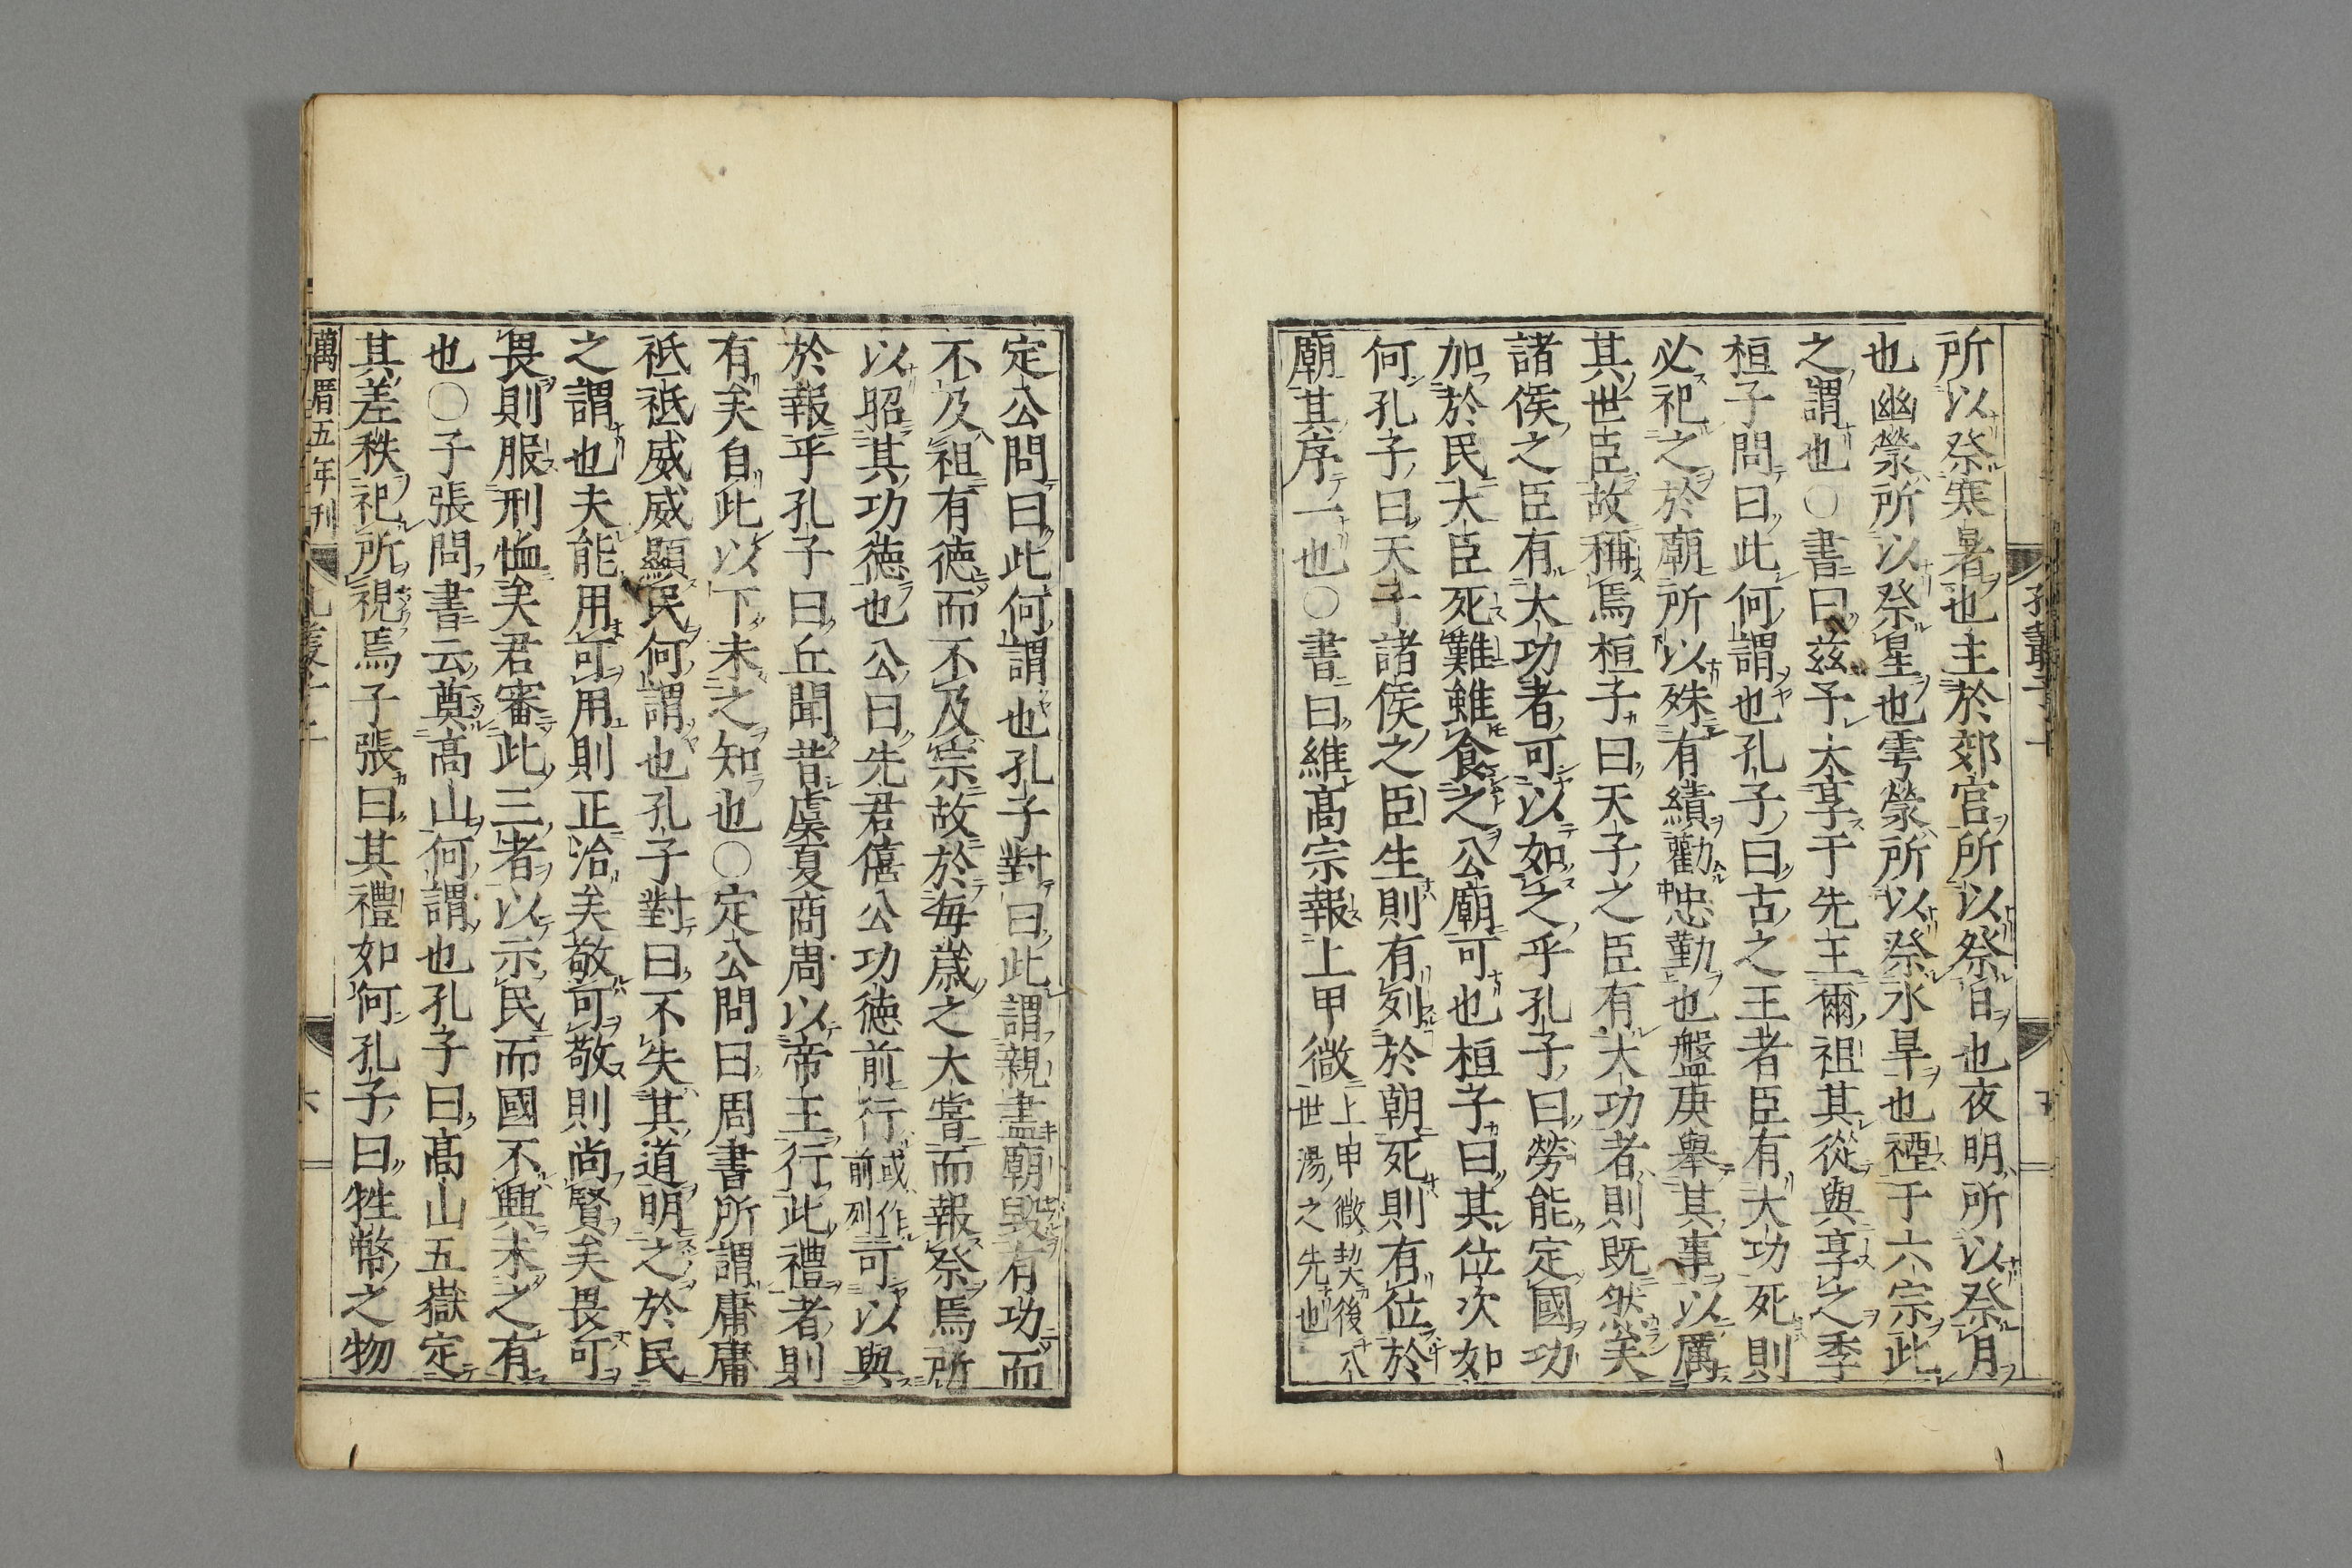 孔叢子上
五
所以祭寒暑也主於郊宮所以祭日也夜明所以祭月
也幽禜所以祭星也雩禜所以祭水旱也禋于六宗此
之謂也○書曰兹予大享于先王爾祖其從與享之季
桓子問曰此何謂也孔子曰古之王者臣有大功死則
必祀之於廟所以殊有績勸忠勤也盤庚舉其事以厲
其世臣故稱焉桓子曰天子之臣有大功者則既然矣
諸侯之臣有大功者可以如之乎孔子曰勞能定國功
加於民大臣死難雖食之公廟可也桓子曰其位次如
何孔子曰天子諸侯之臣生則有列於朝死則有位於
廟其序一也○書曰維高宗報上甲微上甲微契後八世湯之先也
定公問曰此何謂也孔子對曰此謂親盡廟毀有功而
不及祖有德而不及宗故於每歲之大嘗而報祭焉所
以昭其功德也公曰先君僖公功德前行或作前列可以與
於報乎孔子曰丘聞昔虞夏商周以帝王行此禮者則
有矣自此以下未之知也○定公問曰周書所謂庸庸
祗祗威威顯民何謂也孔子對曰不失其道明之於民
之謂也夫能用可用則正治矣敬可敬則尚賢矣畏可
畏則服刑恤矣君審此三者以示民而國不興未之有
也○子張問書云奠高山何謂也孔子曰高山五嶽定
其差秩祀所視焉子張曰其禮如何孔子曰牲幣之物
萬曆五年刊
六